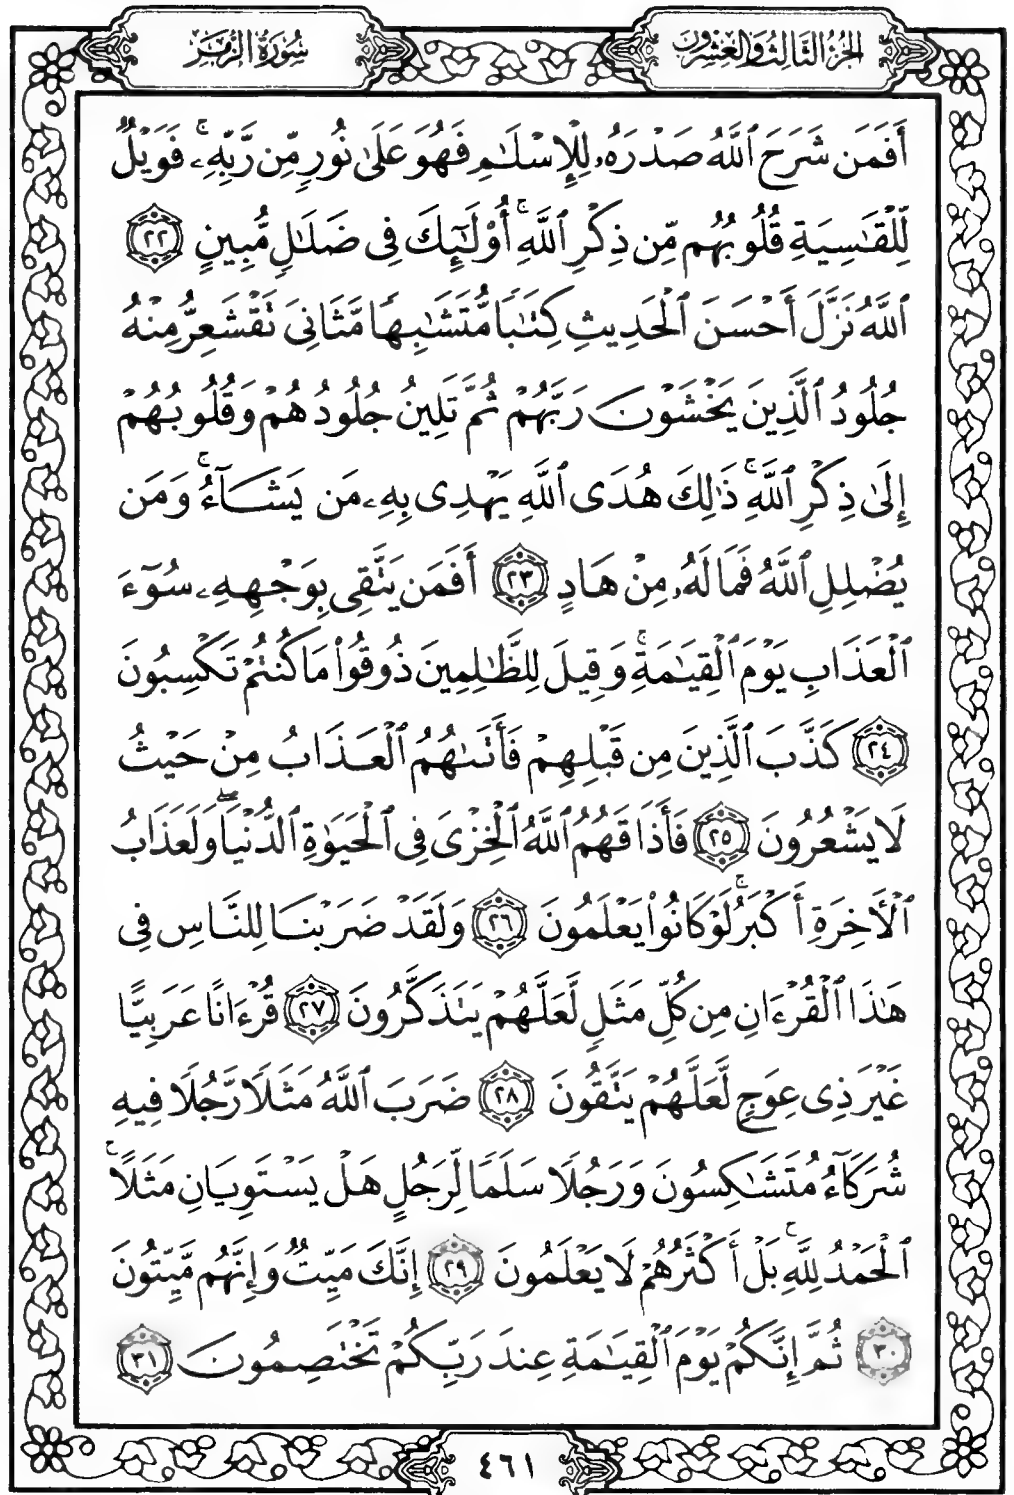 الجزء الثالث والعشرون
سورة الزمر
أَفَمَن شَرَحَ ٱللَّهُ صَدْرَهُۥ لِلْإِسْلَٰمِ فَهُوَ عَلَىٰ نُورٍ مِّن رَّبِّهِۦ ۚ فَوَيْلٌ
لِّلْقَٰسِيَةِ قُلُوبُهُم مِّن ذِكْرِ ٱللَّهِ ۚ أُو۟لَٰٓئِكَ فِى ضَلَٰلٍ مُّبِينٍ ٢٢
ٱللَّهُ نَزَّلَ أَحْسَنَ ٱلْحَدِيثِ كِتَٰبًا مُّتَشَٰبِهًا مَّثَانِىَ تَقْشَعِرُّ مِنْهُ
جُلُودُ ٱلَّذِينَ يَخْشَوْنَ رَبَّهُمْ ثُمَّ تَلِينُ جُلُودُهُمْ وَقُلُوبُهُمْ
إِلَىٰ ذِكْرِ ٱللَّهِ ۚ ذَٰلِكَ هُدَى ٱللَّهِ يَهْدِى بِهِۦ مَن يَشَآءُ ۚ وَمَن
يُضْلِلِ ٱللَّهُ فَمَا لَهُۥ مِنْ هَادٍ ٢٣ أَفَمَن يَتَّقِى بِوَجْهِهِۦ سُوٓءَ
ٱلْعَذَابِ يَوْمَ ٱلْقِيَٰمَةِ ۚ وَقِيلَ لِلظَّٰلِمِينَ ذُوقُوا۟ مَا كُنتُمْ تَكْسِبُونَ
٢٤ كَذَّبَ ٱلَّذِينَ مِن قَبْلِهِمْ فَأَتَىٰهُمُ ٱلْعَذَابُ مِنْ حَيْثُ
لَا يَشْعُرُونَ ٢٥ فَأَذَاقَهُمُ ٱللَّهُ ٱلْخِزْىَ فِى ٱلْحَيَوٰةِ ٱلدُّنْيَا ۖ وَلَعَذَابُ
ٱلْأَخِرَةِ أَكْبَرُ ۚ لَوْ كَانُوا۟ يَعْلَمُونَ ٢٦ وَلَقَدْ ضَرَبْنَا لِلنَّاسِ فِى
هَٰذَا ٱلْقُرْءَانِ مِن كُلِّ مَثَلٍ لَّعَلَّهُمْ يَتَذَكَّرُونَ ٢٧ قُرْءَانًا عَرَبِيًّا
غَيْرَ ذِى عِوَجٍ لَّعَلَّهُمْ يَتَّقُونَ ٢٨ ضَرَبَ ٱللَّهُ مَثَلًا رَّجُلًا فِيهِ
شُرَكَآءُ مُتَشَٰكِسُونَ وَرَجُلًا سَلَمًا لِّرَجُلٍ هَلْ يَسْتَوِيَانِ مَثَلًا ۚ
ٱلْحَمْدُ لِلَّهِ ۚ بَلْ أَكْثَرُهُمْ لَا يَعْلَمُونَ ٢٩ إِنَّكَ مَيِّتٌ وَإِنَّهُم مَّيِّتُونَ
٣٠ ثُمَّ إِنَّكُمْ يَوْمَ ٱلْقِيَٰمَةِ عِندَ رَبِّكُمْ تَخْتَصِمُونَ ٣١
٤٦١